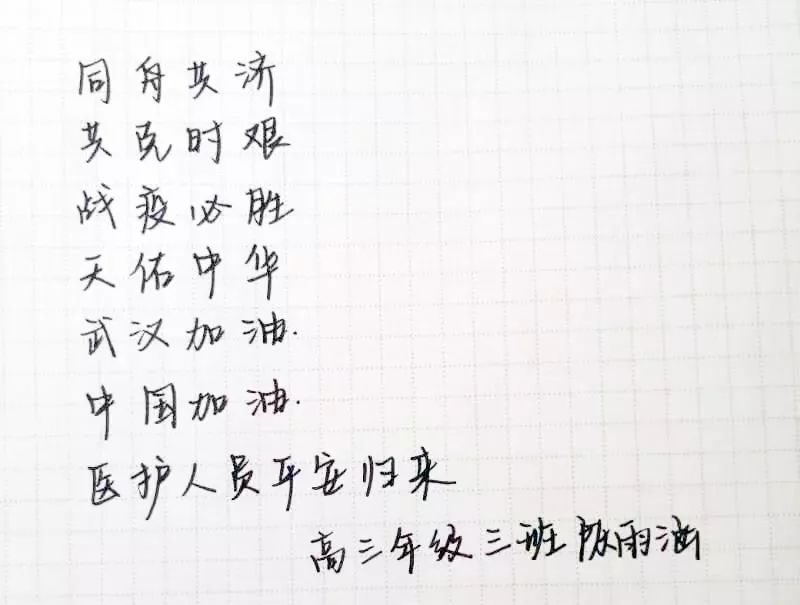 同舟共济
共克时艰
战疫必胜
天佑中华
武汉加油.
中国加油.
医护人员平安归来
高三年级三班 陈雨